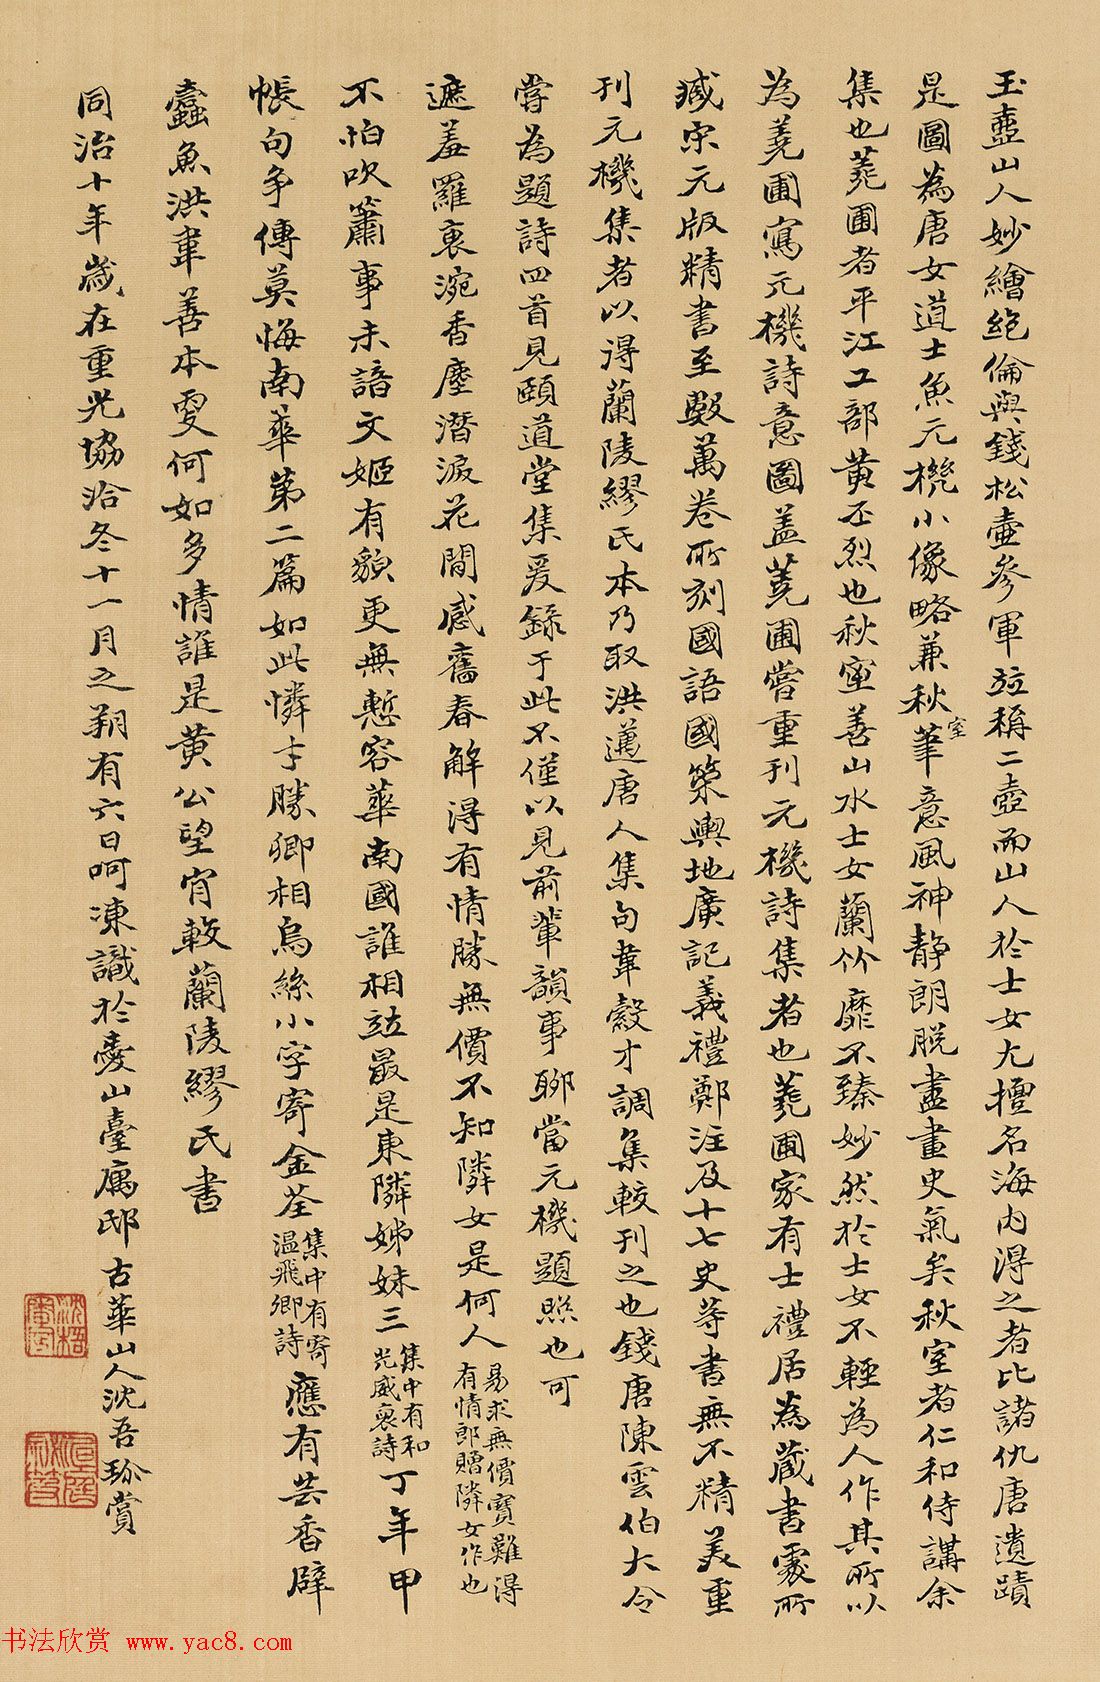 玉壺山人妙繪絕倫與錢松壺參軍竝稱二壺而山人於士女尤擅名海內得之者比諸仇唐遺蹟
是圖為唐女道士魚元機小像略兼秋室筆意風神靜朗脫盡畫史氣矣秋室者仁和侍講余
集也蕘圃者平江工部黃丕烈也秋室善山水士女蘭竹靡不臻妙然於士女不輕為人作其所以
為蕘圃寫元機詩意圖蓋蕘圃嘗重刊元機詩集者也蕘圃家有士禮居為藏書處所
臧宋元版精書至數萬卷所刻國語國策輿地廣記義禮鄭注及十七史等書無不精美重
刊元機集者以得蘭陵繆氏本乃取洪邁唐人集句韋縠才調集較刊之也錢唐陳雲伯大令
嘗為題詩四首見頤道堂集爰錄于此不僅以見前輩韻事聊當元機題照也可
遮羞羅裏涴香塵潛淚花間感舊春解得有情勝無價不知隣女是何人易求無價寶難得
有情郎贈隣女作也
不怕吹簫事未諳文姬有貌更無慙容華南國誰相竝最是東隣姊妹三集中有和
光威裒詩丁年甲
帳句爭傳莫悔南華第二篇如此憐才勝卿相烏絲小字寄金荃集中有寄
温飛卿詩應有芸香辟
蠹魚洪韋善本更何如多情誰是黃公望宵較蘭陵繆氏書
同治十年歲在重光協洽冬十一月之朔有六日呵凍識於臺寓邸古華山人沈吾玠賞
書法欣賞 www.yac8.com